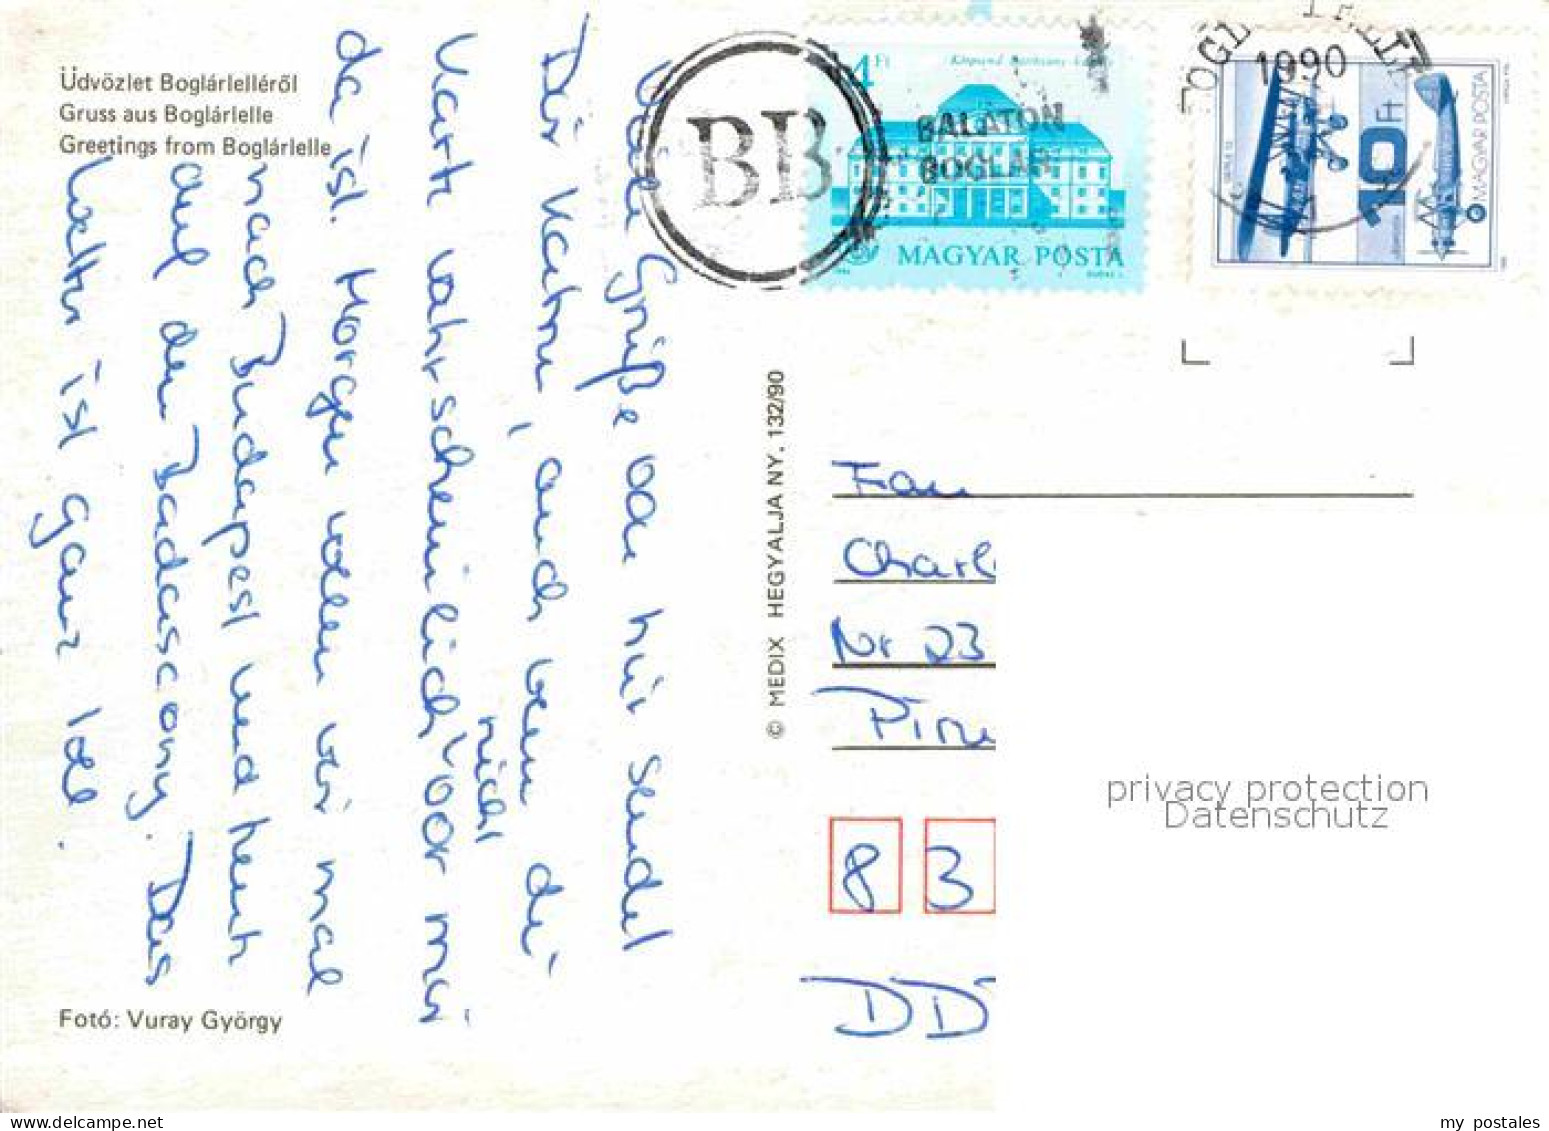 Üdvözlet Boglárlelléről
Gruss aus Boglárlelle
Greetings from Boglárlelle
Viele Grüße von hir sendet
Dir Katrin, auch wenn die
Karte wahrscheinlich vor mir
nicht
da ist. Morgen wollen wir mal
nach Budapest und heute
auf den Badascony. Das
Wetter ist ganz toll.
Fotó: Vuray György
© MEDIX HEGYALJA NY. 132/90
BB
BALATON
BOGLÁR
4 Ft
MAGYAR POSTA
1990
10 Ft
MAGYAR POSTA
Frau
Charl
Nr 23
Pirn
8 3
DD
privacy protection
Datenschutz
my postales